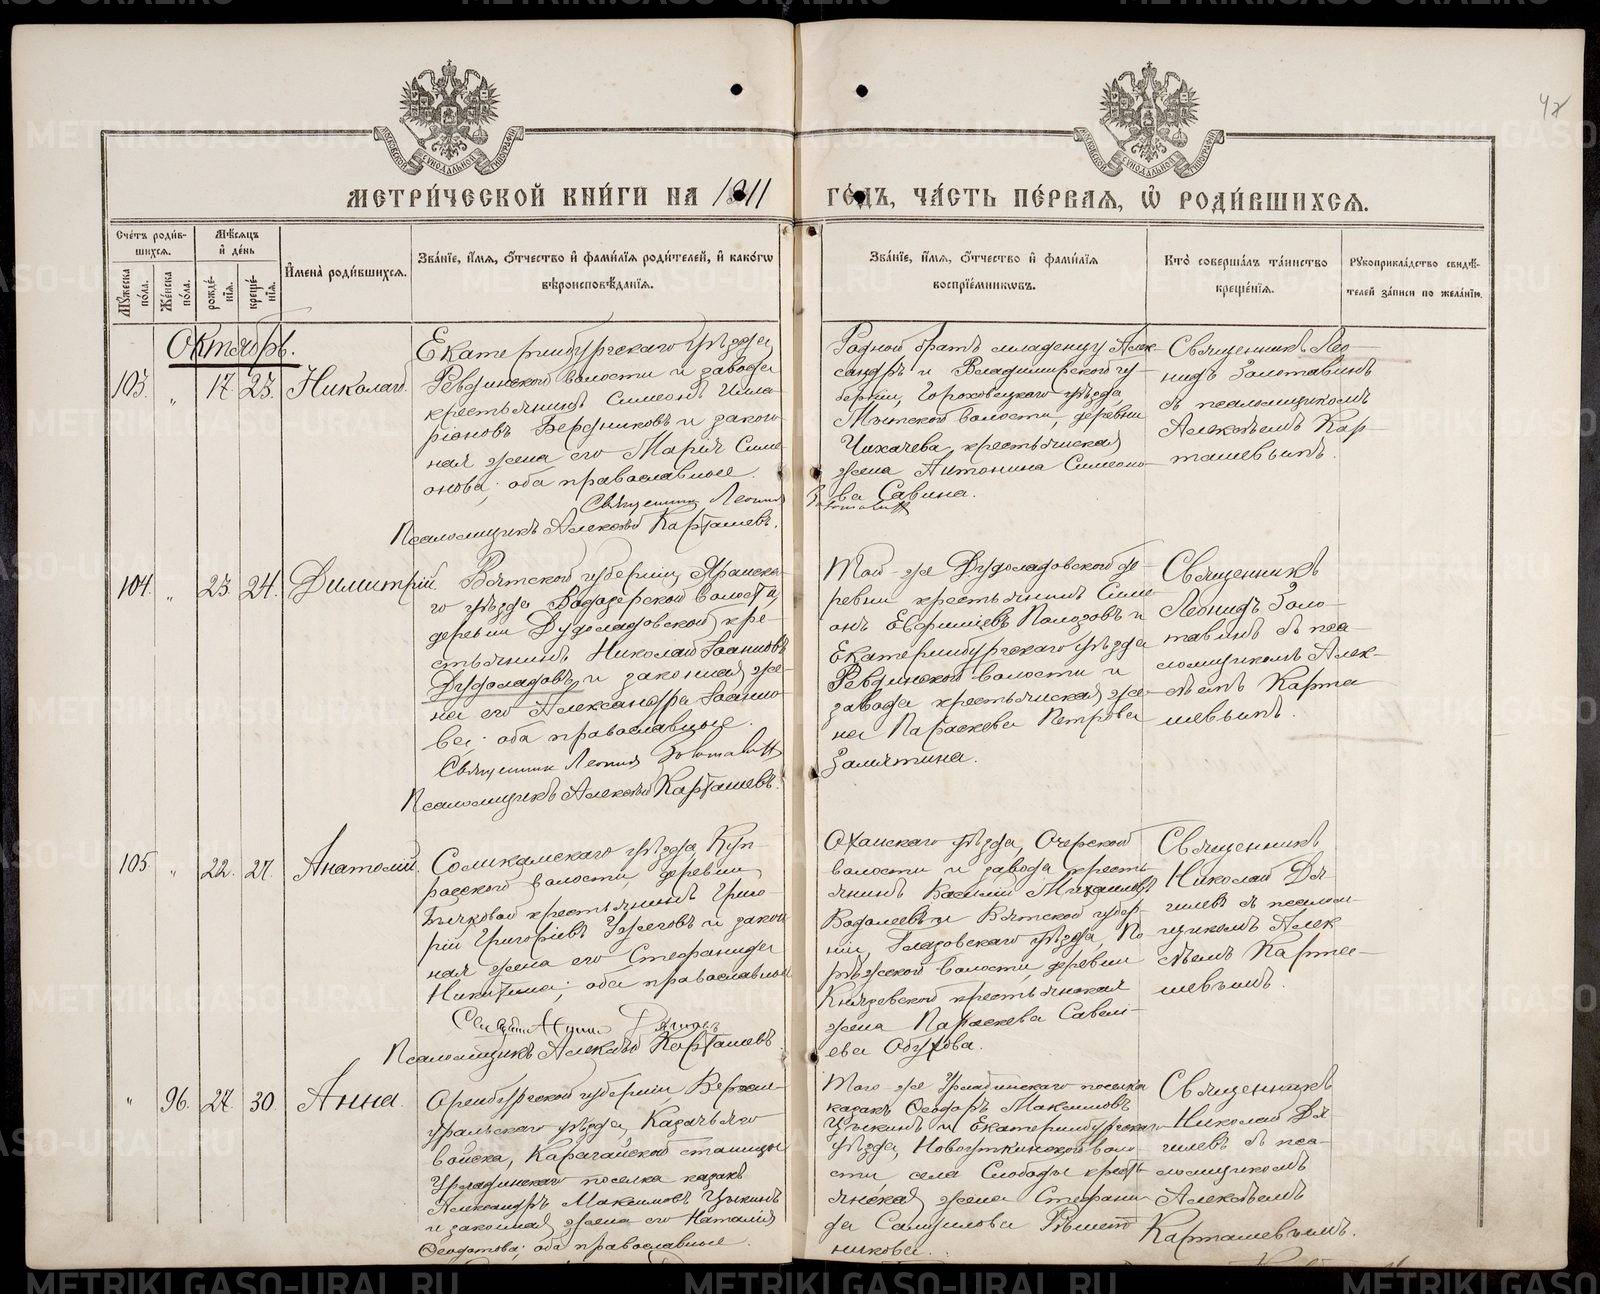 МЕТРИ́ЧЕСКОЙ КНИ́ГИ НА 1911 ГО́ДЪ, ЧА́СТЬ ПЕ́РВАЯ, Ѡ҆ РОДИ́ВШИХСЯ.
Сче́тъ роди́в-
шихся.
Мѣ́сяцъ
и҆ де́нь
Мꙋ́жеска по́ла.
Же́нска по́ла.
рожде́-
нїя.
креще́-
нїя.
И҆мена̀ роди́вшихся.
Зва́нїе, и҆́мя, ѻ҆́тчество и҆ фами́лїя роди́телей, и҆ како́гѡ
вѣроисповѣ́данїя.
Зва́нїе, и҆́мя, ѻ҆́тчество и҆ фами́лїя
воспрїе́мникѡвъ.
Кто̀ соверша́лъ та́инство
креще́нїя.
Рꙋкоприкла́дство свидѣ́-
телей за́писи по жела́нїю.
Октябрь.
103. „ 17. 23. Николай.
Екатеринбургскаго уѣзда,
Ревдинской волости и завода
крестьянинъ Симеонъ Илла-
ріоновъ Бердниковъ и закон-
ная жена его Марія Симе-
онова; оба православные.
Священникъ Леонидъ Золотавинъ
Псаломщикъ Алексѣй Карташевъ.
Родной братъ младенцу Алек-
сандръ и Владимирской гу-
берніи, Гороховецкаго уѣзда,
Мытской волости, деревни
Чихачева, крестьянская
жена Антонина Симеоно-
ва Савина.
Священникъ Лео-
нидъ Золотавинъ
съ псаломщикомъ
Алексѣемъ Кар-
ташевымъ.
104. „ 23. 24. Димитрій.
Вятской губерніи, Яранска-
го уѣзда, волости,
деревни Дудоладовской, кре-
стьянинъ Николай Іоанновъ
Дудоладовъ и законная же-
на его Александра Іоанно-
ва; оба православные.
Священникъ Леонидъ Золотавинъ
Псаломщикъ Алексѣй Карташевъ.
Той-же Дудоладовской де-
ревни крестьянинъ Симе-
онъ Евфиміевъ Полозовъ и
Екатеринбургскаго уѣзда
Ревдинской волости и
завода крестьянская же-
на Параскева Петрова
Замятина.
Священникъ
Леонидъ Золо-
тавинъ съ пса-
ломщикомъ Алек-
сѣемъ Карта-
шевымъ.
105. „ 22. 27. Анатолій.
Соликамскаго уѣзда, Куп-
росской волости, деревни
Бычковой крестьянинъ Григо-
рій Григоріевъ Ужеговъ и закон-
ная жена его Стефанида
Никитина; оба православные
Священникъ Николай Дягилевъ
Псаломщикъ Алексѣй Карташевъ.
Оханскаго уѣзда, Очерской
волости и завода кресть-
янинъ Василій Михаиловъ
Водолеевъ и Вятской губер-
ніи, Глазовскаго уѣзда, По-
рѣжской волости, деревни
Князевской, крестьянская
жена Параскева Савель-
ева Обухова.
Священникъ
Николай Дя-
гилевъ съ псалом-
щикомъ Алек-
сѣемъ Карта-
шевымъ.
„ 96. 27. 30. Анна.
Оренбургской губерніи, Верхне-
уральскаго уѣзда, Казачьяго
войска, Карагайской станицы
Урлядинскаго поселка казакъ
Александръ Максимовъ Цыкинъ
и законная жена его Наталія
Ѳеодотова; оба православные.
Того-же Урлядинскаго поселка
казакъ Ѳеодоръ Максимовъ
Цыкинъ и Екатеринбургскаго
уѣзда, Новоуткинской воло-
сти, села Слободы, кресть-
янская жена Стефани-
да Самуилова Рѣшет-
никова.
Священникъ
Николай Дя-
гилевъ съ пса-
ломщикомъ
Алексѣемъ
Карташевымъ.